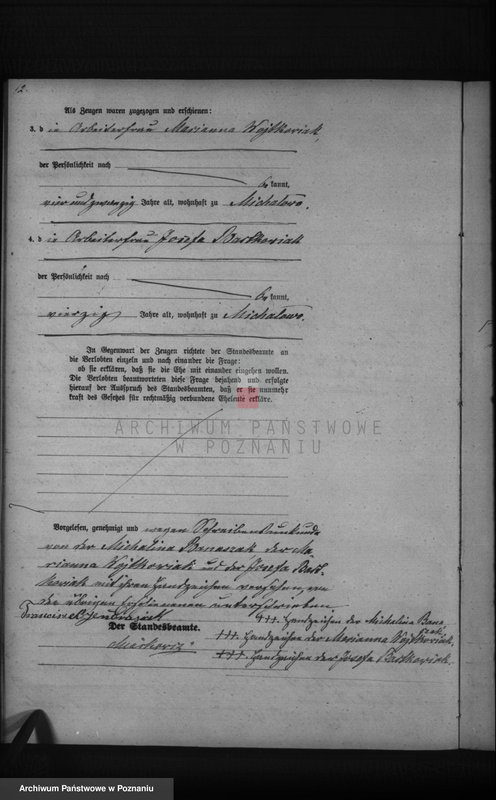 2.
Als Zeugen waren zugezogen und erschienen:
3. d ie Arbeiterfrau Marianna Wojtkowiak,
der Persönlichkeit nach
be kannt,
vierundzwanzig Jahre alt, wohnhaft zu Michalowo.
4. d ie Arbeiterfrau Josefa Bartkowiak
der Persönlichkeit nach
be kannt,
vierzig Jahre alt, wohnhaft zu Michalowo.
In Gegenwart der Zeugen richtete der Standesbeamte an
die Verlobten einzeln und nach einander die Frage:
ob sie erklären, daß sie die Ehe mit einander eingehen wollen.
Die Verlobten beantworteten diese Frage bejahend und erfolgte
hierauf der Ausspruch des Standesbeamten, daß er sie nunmehr
kraft des Gesetzes für rechtmäßig verbundene Eheleute erkläre.
ARCHIWUM PAŃSTWOWE
W POZNANIU
Vorgelesen, genehmigt und wegen Schreibensunkunde
von der Michalina Banaszak, der Ma-
rianna Wojtkowiak und der Josefa Bart-
kowiak mit ihren Handzeichen versehen, von
den übrigen Erschienenen unterschrieben
+++ Handzeichen der Michalina Bana
szak.
Der Standesbeamte.
+++ Handzeichen der Marianna Wojtkowiak.
+++ Handzeichen der Josefa Bartkowiak.
Archiwum Państwowe w Poznaniu